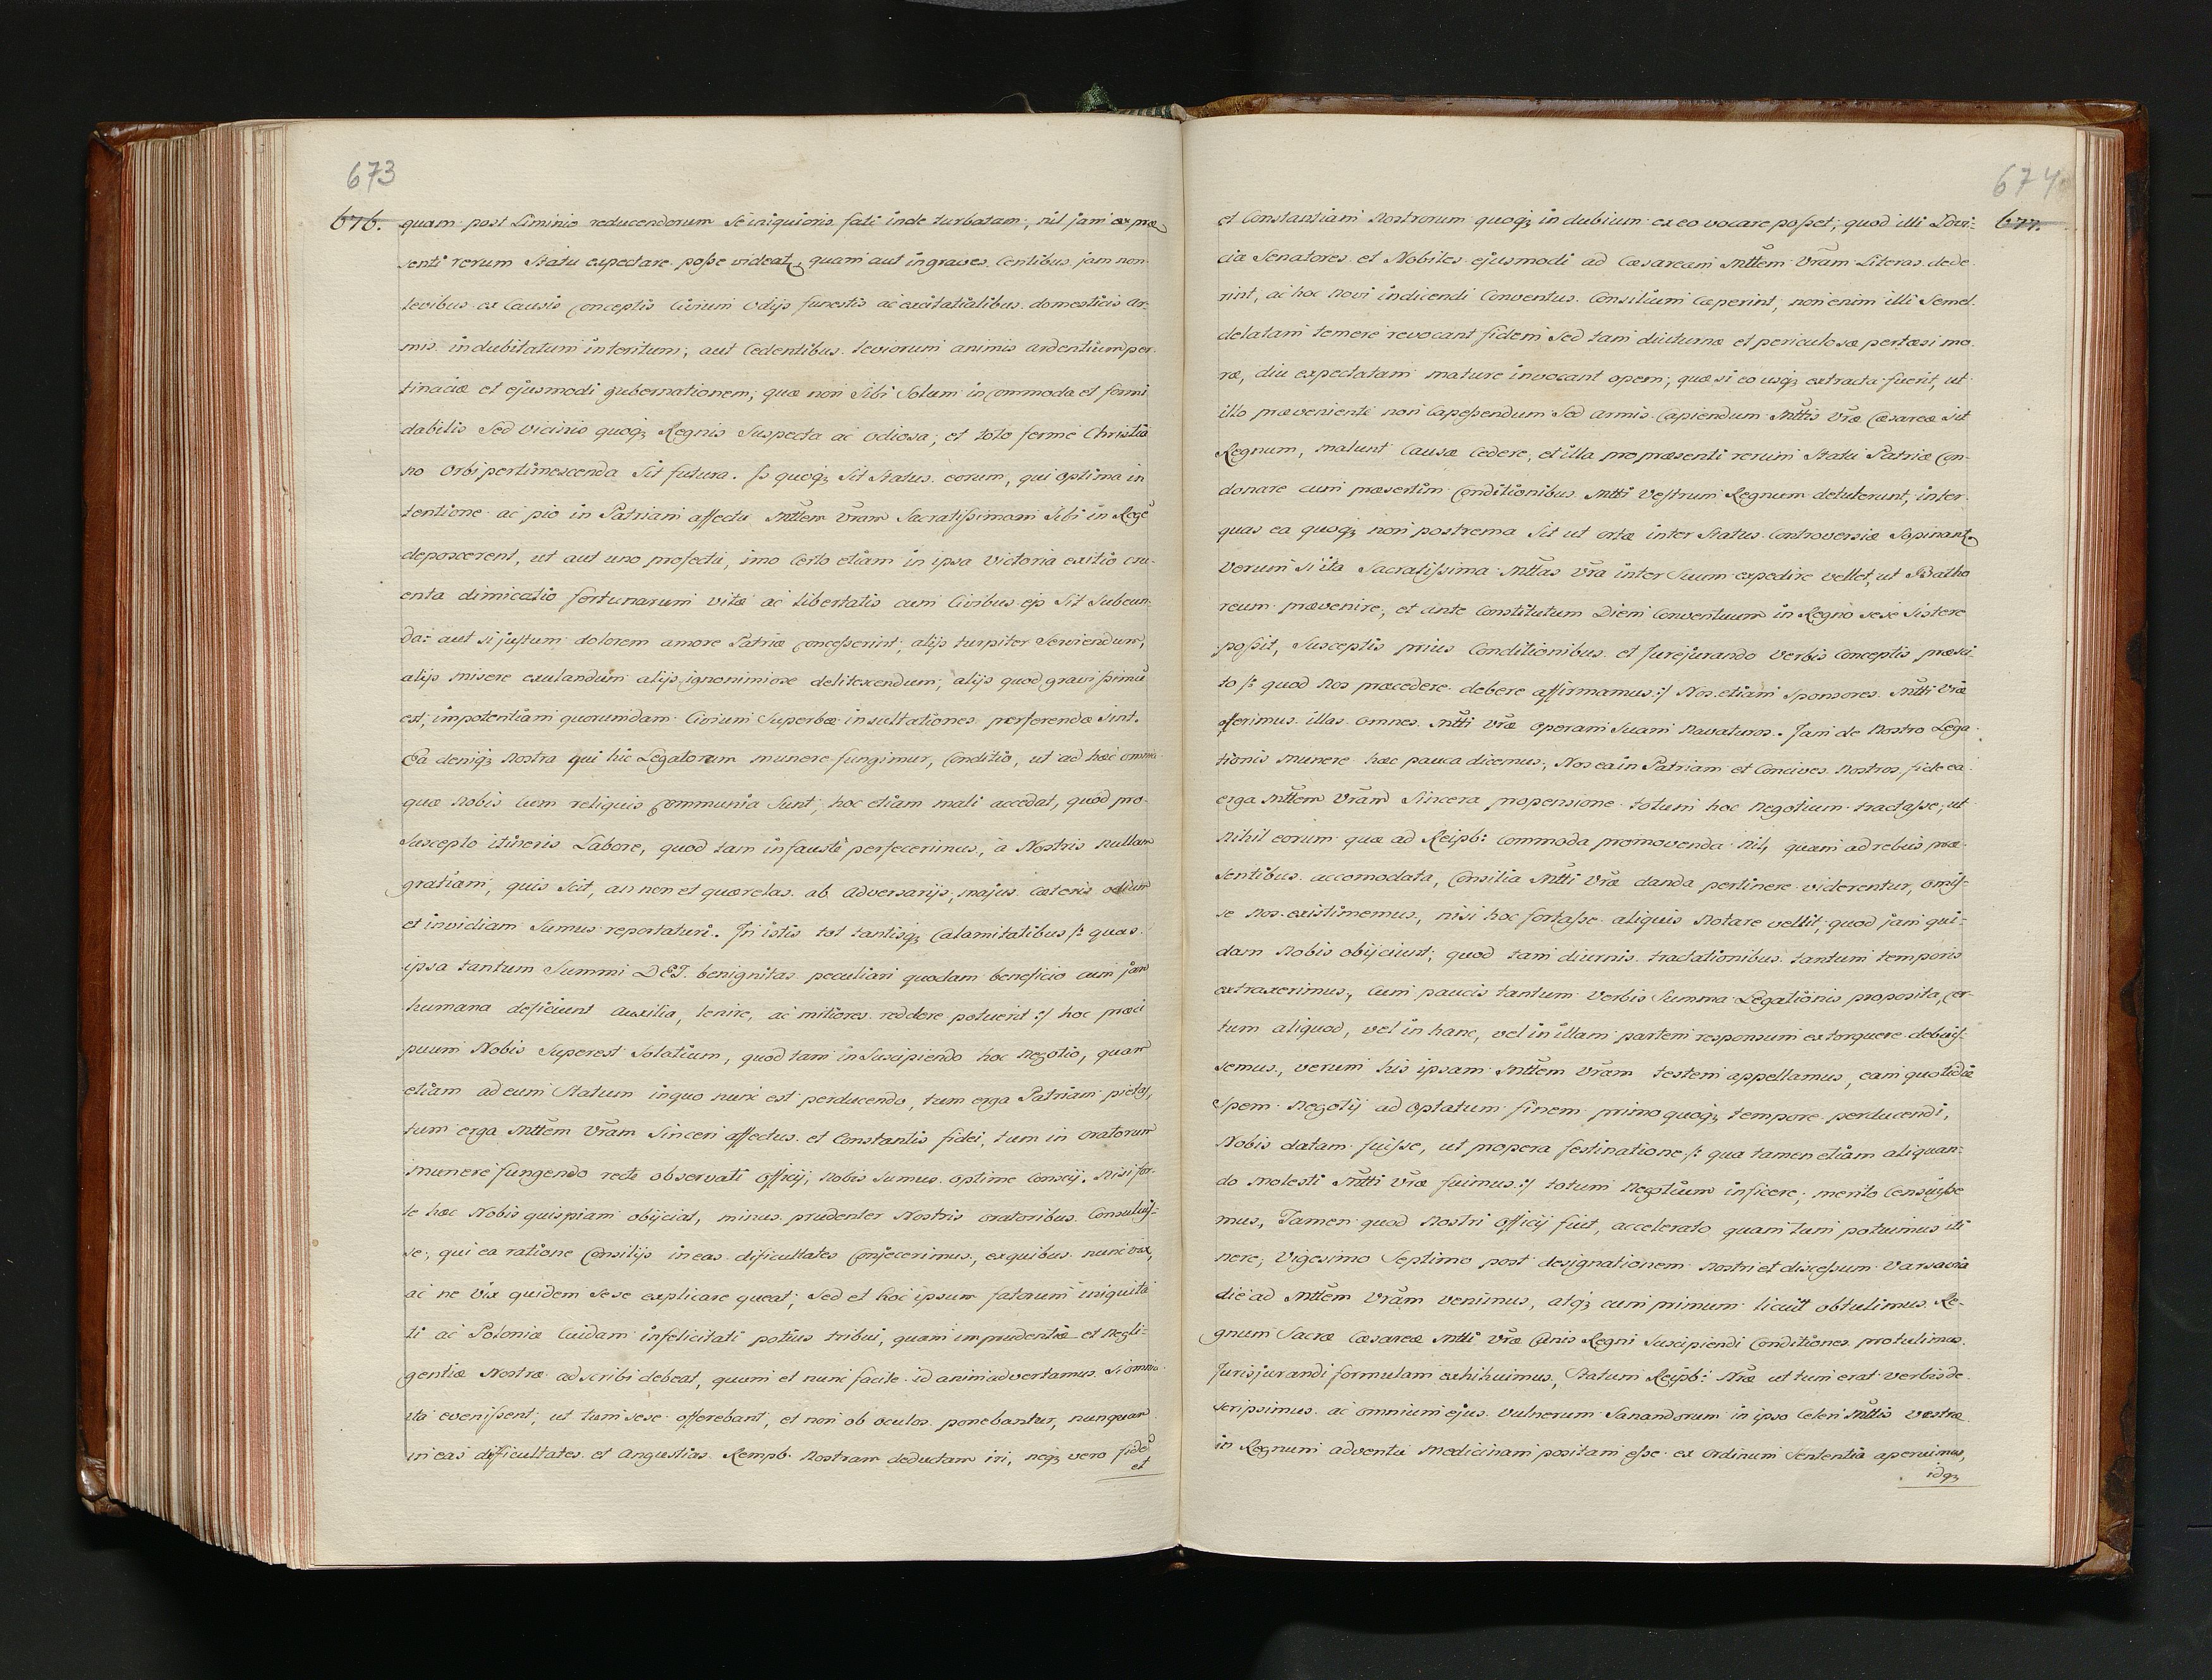 673
676. quam post Liminio reducendorum se iniquioris fati inde turbatam, nil jam ex præ
senti rerum Statu expectare posse videatq, quam aut ingraves centibus jam non
levibus ex Causis conceptis Civium odijs funestis ac exitatialibus domesticis ar-
mis indubitatum interitum, aut Cedentibus leviorum animis ardentium per
tinaciæ et ejusmodi gubernationem, quæ non Sibi Solum incommoda et formi
dabilis Sed vicinis quoq Regnis Suspecta ac odiosa, et toto ferme Christia
no Orbi pertimescenda Sit futura. Is quoq Sit Status eorum, qui optima in
tentione ac pio in Patriam affectu Mttem Vram Sacratissimam Sibi in Rege
deposcerent, ut aut uno profectu, imo Certo etiam in ipsa Victoria exitio cru-
enta dimicatio fortunarum vitæ ac libertatis cum Civibus ejs Sit Subeun-
da: aut si justum dolorem amore Patriæ concesserint, alijs turpiter Serviendum,
alijs misere exulandum alijs ignominiose delitescendum, alijs quod gravissimu
est, impotentiam quorumdam Civium Superbæ insultationes perferendæ sint.
Ea deniq Nostra qui hic Legatorum munere fungimur, Conditio, ut ad hæc omnia
quæ Nobis Cum reliquis communia Sunt, hoc etiam mali accedat, quod pro
Suscepto itineris Labore, quod tam infauste perfecerimus, à Nostris nullam
gratiam, quis Scit, an non et quærelas ab Adversarijs, majus cæteris odium
et invidiam Sumus reportaturi. In istis tot tantisq Calamitatibus /: quas
ipsa tantum Summi DEI benignitas peculiari quodam beneficio cum jam
humana deficiunt Auxilia, lenire, ac mitiores reddere potuerit :/ hoc præci
puum Nobis Superest Solatium, quod tam in Suscipiendo hoc Negotio, quam
etiam ad eum Statum inquo nunc est perducendo, tum erga Patriam pietas,
tum erga Mttem Vram Sinceri affectus et Constantis fidei, tum in oratorum
munere fungendo recte observati Officij, Nobis Sumus optime Conscij. Nisi for-
te hoc Nobis quispiam obijciat, minus prudenter Nostris oratoribus Consuluis-
se, qui ea ratione Consilijs in eas dificultates Conjecerimus, ex quibus nunc vix,
ac ne vix quidem Sese explicare queat, Sed et hoc ipsum fatorum iniquita
ti ac Poloniæ Cuidam infelicitati potius tribui, quam imprudentiæ et Negli-
gentiæ Nostræ adscribi debeat, quam et nunc facile id animadvertamus Si omnia
ita evenissent, ut tum sese offerebant, et non ob oculos ponebantur, nunquam
in eas difficultates et Angustias Rempb. Nostram deductam iri, neq vero fide
et
674
et Constantiam Nostrorum quoq in dubium ex eo vocare posset, quod illi Lovi-
cia Senatores et Nobiles ejusmodi ad Cæsaream Mttem Vram Literas dede
rint, ac hoc Novi indicendi Conventus Consilium cæperint, non enim illi Semel
delatam temere revocant fidem Sed tam diuturnæ et periculosæ pertæsi mo
ræ, diu expectatam mature invocant opem, quæ si eo usq extracta fuerit, ut
illo præveniente non Capessendum Sed Armis Capiendum Mttis Vræ Cæsareæ sit
Regnum, malunt Causæ Cedere, et illa pro præsenti rerum Statu Patriæ Con-
donare cum præsertim Conditionibus Mtti Vestrum Regnum detulerunt, inter
quas ea quoq non postrema Sit ut ortæ inter Status Controversiæ Sopinantq
Verum si ita Sacratissima Mttas Vra inter Suum expedire vellet, ut Batho
reum prævenire, et ante Constitutum Diem Conventuum in Regno sese Sistere
possit, Susceptis prius Conditionibus et Jurejurando Verbis Conceptis præsti-
to /: quod Nos præcedere debere affirmamus :/ Nos etiam Sponsores Mtti Vræ
offerimus illas omnes Mtti Vræ Operam Suam Navaturos. Jam de Nostro Lega-
tionis Munere hæc pauca dicemus, Nos ea in Patriam et Concives Nostros fide ea
erga Mttem Vram Sincera propensione totum hoc Negotium tractasse, ut
Nihil eorum quæ ad Reipb: Commoda promovenda nil, quam ad rebus præ-
Sentibus accomodata, Consilia Mtti Vræ danda pertinere viderentur, omis-
se Nos existimemus, nisi hoc fortasse aliquis Notare vellit, quod jam qui-
dam Nobis obijciunt, quod tam diurnis tractationibus tantum temporis
extraxerimus, Cum paucis tantum Verbis Summa Legationis proposita, cer
tum aliquod, vel in hanc, vel in illam partem responsum extorquere debuis-
semus, verum his ipsam Mttem Vram testem appellamus, eam quotidie
Spem Negotij ad Optatum finem primo quoq tempore perducendi,
Nobis datam fuisse, ut propera festinatione /: qua tamen etiam aliquan-
do Molesti Mtti Vræ fuimus :/ totum Negotium inficere, merito Censuisse
mus, Tamen quod Nostri Officij fuit, accelerato quam tum potuimus iti
nere, Vigesimo Septimo post designationem Nostri et discessum Varsavia
die ad Mttem Vram venimus, atq cum primum licuit obtulimus Re-
gnum Sacræ Cæsareæ Mtti Vræ Regni Suscipiendi Conditiones protulimus
Jurisjurandi formulam exhibuimus, Statum Reipb: Nræ ut tum erat verbis de
scripsimus ac omnium ejus Vulnerum Sanandorum in ipso Celeri Mttis vestræ
in Regnum adventu Medicinam positam esse ex Ordinum Sententia aperuimus,
idq